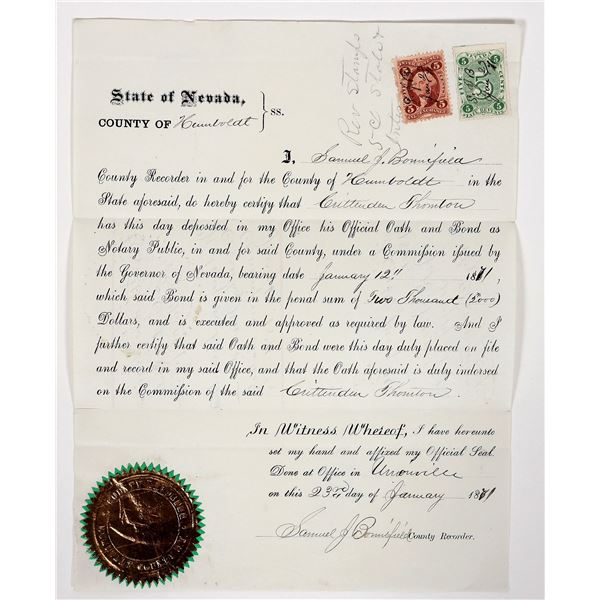 Rev Stamps
5¢ State &
State of Nevada,
COUNTY OF Humboldt } ss.
I, Samuel J. Bonnifield
County Recorder in and for the County of Humboldt in the
State aforesaid, do hereby certify that Crittenden Thornton
has this day deposited in my Office his Official Oath and Bond as
Notary Public, in and for said County, under a Commission issued by
the Governor of Nevada, bearing date January 12" 1871,
which said Bond is given in the penal sum of Two Thousand (2000)
Dollars, and is executed and approved as required by law. And I
further certify that said Oath and Bond were this day duly placed on file
and record in my said Office, and that the Oath aforesaid is duly indorsed
on the Commission of the said Crittenden Thornton.
In Witness Whereof, I have hereunto
set my hand and affixed my Official Seal.
Done at Office in Unionville
on this 23rd day of January 1871
Samuel J. Bonnifield County Recorder.
5 5
5 5